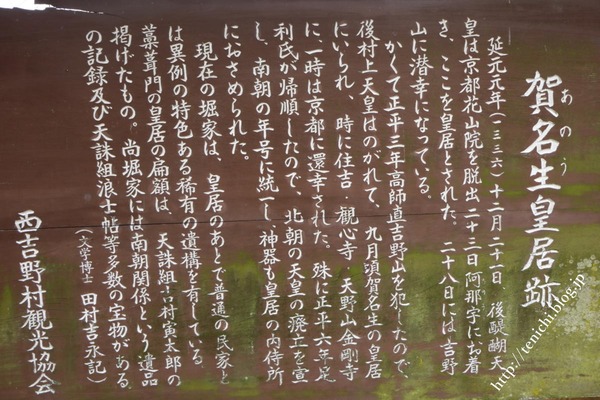 賀名生皇居跡
あのう
延元元年(一三三六)十二月二十一日 後醍醐天
皇は京都花山院を脱出二十三日阿那宇にお着
き、ここを皇居とされた。二十八日には吉野
山に潜幸になっている。
かくて正平三年高師直吉野山を犯したので
後村上天皇はのがれて、九月頃賀名生の皇居
にいられ、時に住吉・観心寺・天野山金剛寺
に、一時は京都に還幸された。殊に正平六年足
利氏が帰順したので、北朝の天皇の廃立を宣
し、南朝の年号に統一し、神器も皇居の内侍所
におさめられた。
現在の堀家は、皇居のあとで普通の民家と
は異例の特色ある稀有の遺構を有している。
藁葺門の皇居の扁額は、天誅組吉村寅太郎の
掲げたもの。尚堀家には南朝関係という遺品
の記録及び天誅組浪士帖等多数の宝物がある。
(文学博士 田村吉永記)
西吉野村観光協会
http://tenichi.blog.jp